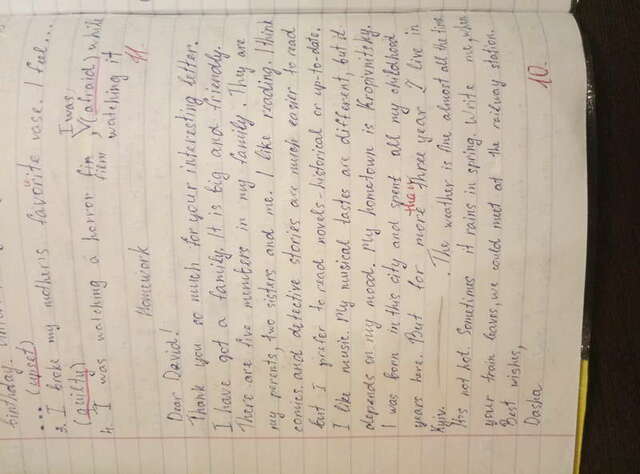 birthday.
... (upset)
3. I broke my mother's favorite vase. I feel...
(guilty) I was
4. I was watching a horror film (afraid) while
film watching it
11.
Homework
Dear David!
Thank you so much for your interesting letter.
I have got a family. It is big and friendly.
There are five members in my family. They are
my parents, two sisters and me. I like reading. I think
comics and detective stories are much easier to read
but I prefer to read novels-historical or up-to-date.
I like music. My musical tastes are different, but it
depends on my mood. My hometown is Kropivnitsky.
I was born in this city and spent all my childhood
than
years here. But for more three year I live in
Kyiv. The weather is fine almost all the time.
It's not hot. Sometimes it rains in spring. Write me, when
your train leaves. we could meet at the railway station.
Best wishes,
Dasha
10.